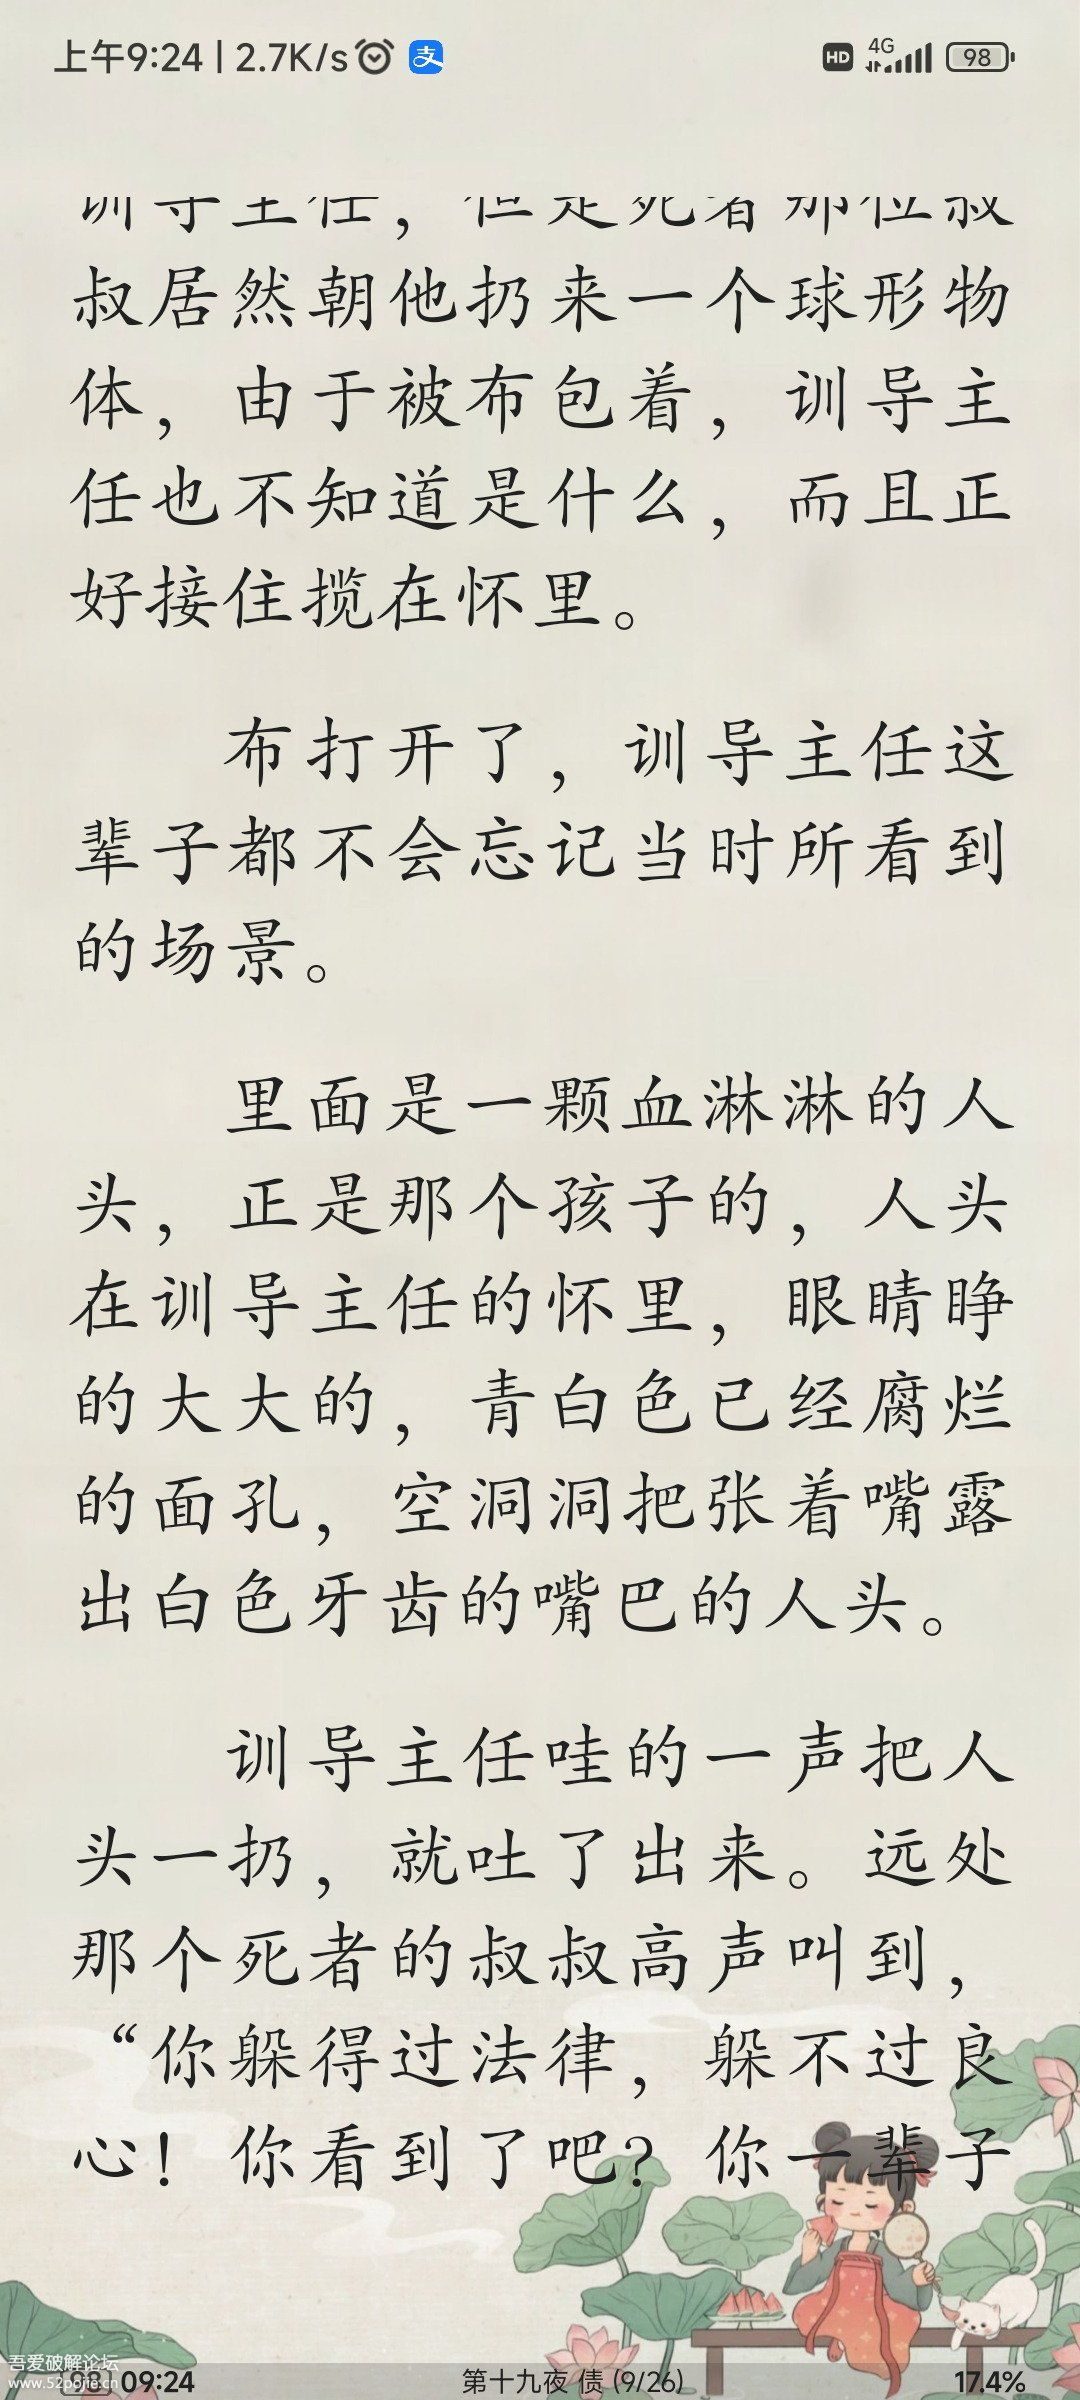 上午9:24 | 2.7K/s 支
HD 4G 98
训导主任，但是死者那位叔
叔居然朝他扔来一个球形物
体，由于被布包着，训导主
任也不知道是什么，而且正
好接住揽在怀里。
布打开了，训导主任这
辈子都不会忘记当时所看到
的场景。
里面是一颗血淋淋的人
头，正是那个孩子的，人头
在训导主任的怀里，眼睛睁
的大大的，青白色已经腐烂
的面孔，空洞洞把张着嘴露
出白色牙齿的嘴巴的人头。
训导主任哇的一声把人
头一扔，就吐了出来。远处
那个死者的叔叔高声叫到，
“你躲得过法律，躲不过良
心！你看到了吧？你一辈子
吾爱破解论坛
www.52pojie.cn
98 09:24 第十九夜 债 (9/26) 17.4%